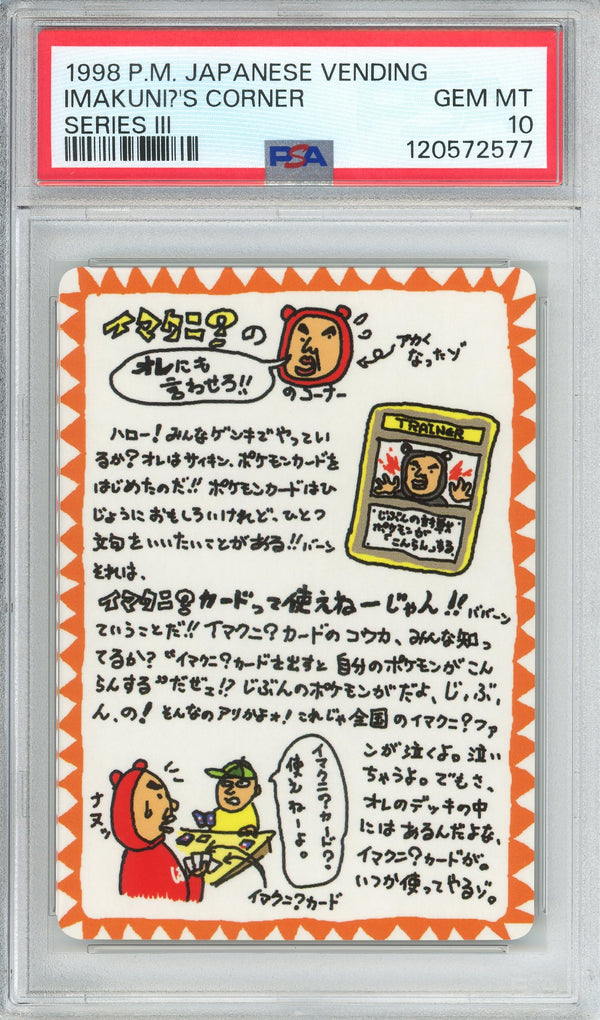 1998 P.M. JAPANESE VENDING
IMAKUNI?'S CORNER
GEM MT
SERIES III
10
PSA
120572577
イマクニ?の
オレにも
言わせろ!!
のコーナー
アカく
なったゾ
ハロー!みんなゲンキでやってい
るか?オレはサイキン、ポケモンカードを
はじめたのだ!!ポケモンカードはひ
じょうにおもしろいけれど、ひとつ
文句をいいたいことがある!!バーン
それは、
TRAINER
じぶんの対戦
ポケモンが
「こんらん」する
イマクニ?カードって使えねーじゃん!!ババーン
ていうことだ!!イマクニ?カードのコウカ、みんな知っ
てるか?"イマクニ?カードを出すと自分のポケモンがこん
らんする"だぜェ!?じぶんのポケモンがだよ、じ,ぶ,
ん、の!そんなのアリかよォ!これじゃ全国のイマクニ?ファ
ンが泣くよ。泣い
ちゃうよ。でもさ、
オレのデッキの中
にはあるんだよな、
イマクニ?カードが。
いつか使ってやるゾ。
ナヌッ
イマクニ?カード?
使えねーよ。
イマクニ?カード